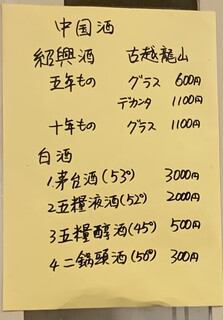 中国酒
紹興酒 古越龍山
五年もの グラス 600円
デカンタ 1100円
十年もの グラス 1100円
白酒
1.茅台酒(53°) 3000円
2五糧液酒(52°) 2000円
3五糧醇酒(45°) 500円
4二鍋頭酒(50°) 300円